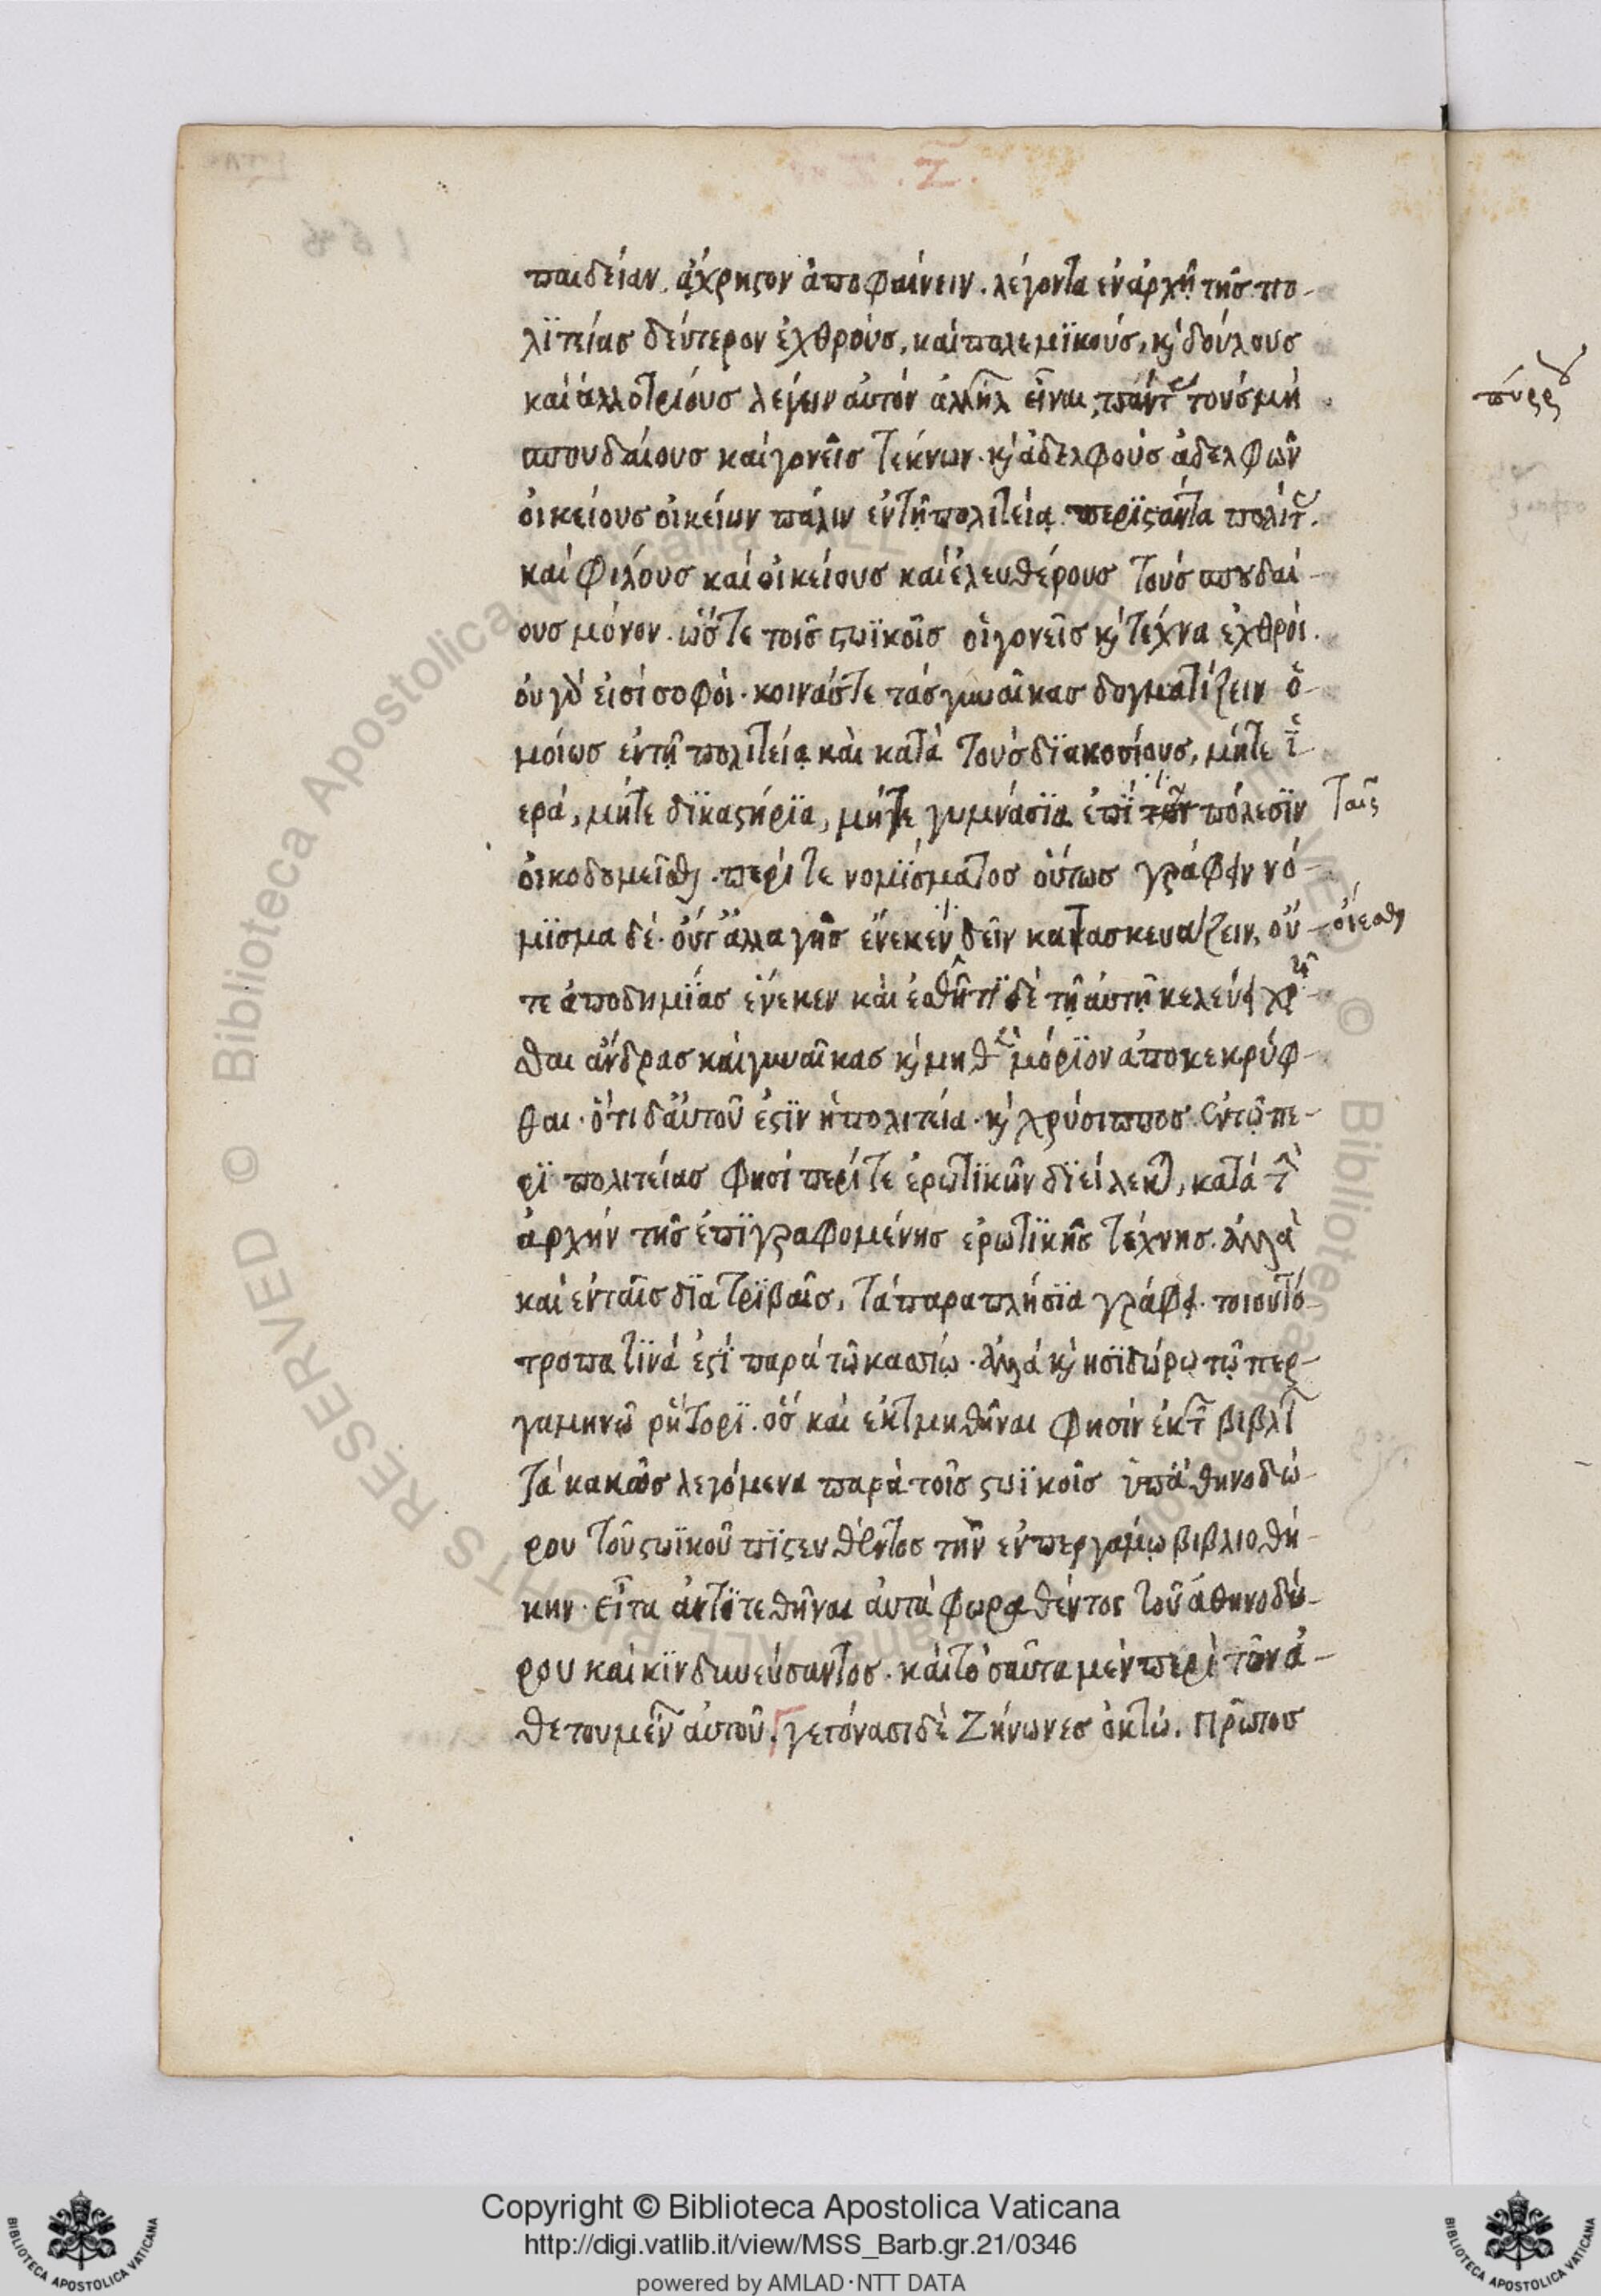 .Ζ̅.
παιδείαν ἄχρηϛον ἀποφαίνειν. λέγοντα ἐν ἀρχῆ τῆς πο-
λϊτείας δεύτερον ἐχθρούς, καὶ πολεμϊκούς, κ̀ δούλους
καὶ ἀλλοτρίους λέγων αὐτὸν ἀλλήλ εἶναι, πάντ τοὺς μὴ
σπουδαίους καὶ γονεῖς τέκνων. κ̀ ἀδελφοὺς ἀδελφῶν
οἰκείους οἰκείων πάλιν ἐν τῆ πολιτεία περϊϛάντα πολίτ.
καὶ φίλους καὶ οἰκείους καὶ ἐλευθέρους τοὺς σπουδαί-
ους μόνον. ὥστε τοῖς ϛωϊκοῖς οἱ γονεῖς κ̀ τέχνα ἐχθροί.
οὐ γὰρ εἰσὶ σοφοί. κοινάς τε τὰς γυναῖκας δογματίζειν ὁ-
μοίως ἐν τῆ πολιτεία καὶ κατὰ τοὺς δϊακοσίους, μήτε ἱ-
ερά, μήτε δϊκαϛήρϊα, μήτε γυμνάσϊα ἐπϊ τῶν πόλεσϊν ταῖς
οἰκοδομεῖσθ. περί τε νομϊσματος οὕτως γράφειν νό-
μϊσμα δέ. οὔτ ἀλλαγῆς ἕνεκεν δεῖν κατασκευάζειν, οὔ- οἴεσθ
τε ἀποδημίας ἕνεκεν καὶ ἐσθῆτϊ δὲ τῆ αὐτῆ κελεύει χρῆ-
σθαι ἄνδρας καὶ γυναῖκας κ̀ μηθὲν μόρϊον ἀποκεκρύφ-
θαι. ὅτι δ αὐτοῦ ἐϛϊν ἡ πολιτεία. κ̀ χρύσιππος ἐν τῶ πε-
ρϊ πολιτείας φησί περί τε ἐρωτϊκῶν δϊείλεκτ, κατὰ τὴν
ἀρχὴν τῆς ἐπϊγραφομένης ἐρωτϊκῆς τέχνης. ἀλλὰ
καὶ ἐν ταῖς δϊατρϊβαῖς, τὰ παραπλήσϊα γράφει. τοιουτό-
τροπα τϊνά ἐϛϊ παρὰ τῶ κασίω. ἀλλὰ κ̀ ησϊδώρω τῶ περ-
γαμηνῶ ῥήτορϊ. ὃς καὶ ἐκτμηθῆναι φησὶν ἐκ τῶν βιβλί
τὰ κακῶς λεγόμενα παρὰ τοῖς ϛωϊκοῖς ὑπ ἀθηνοδώ-
ρου τοῦ ϛωϊκοῦ πϊϛευθέντος τὴν ἐν περγάμω βιβλιοθή-
κην. εἶτα ἀντϊτεθῆναι αὐτὰ φωραθέντος τοῦ ἀθηνοδώ-
ρου καὶ κϊνδυνεύσαντος. καὶ τοσαῦτα μὲν περὶ τῶν ἀ-
θετουμέν αὐτοῦ. γεγόνασι δὲ Ζήνωνες ὀκτώ. Πρῶτος
Copyright © Biblioteca Apostolica Vaticana
http://digi.vatlib.it/view/MSS_Barb.gr.21/0346
powered by AMLAD·NTT DATA